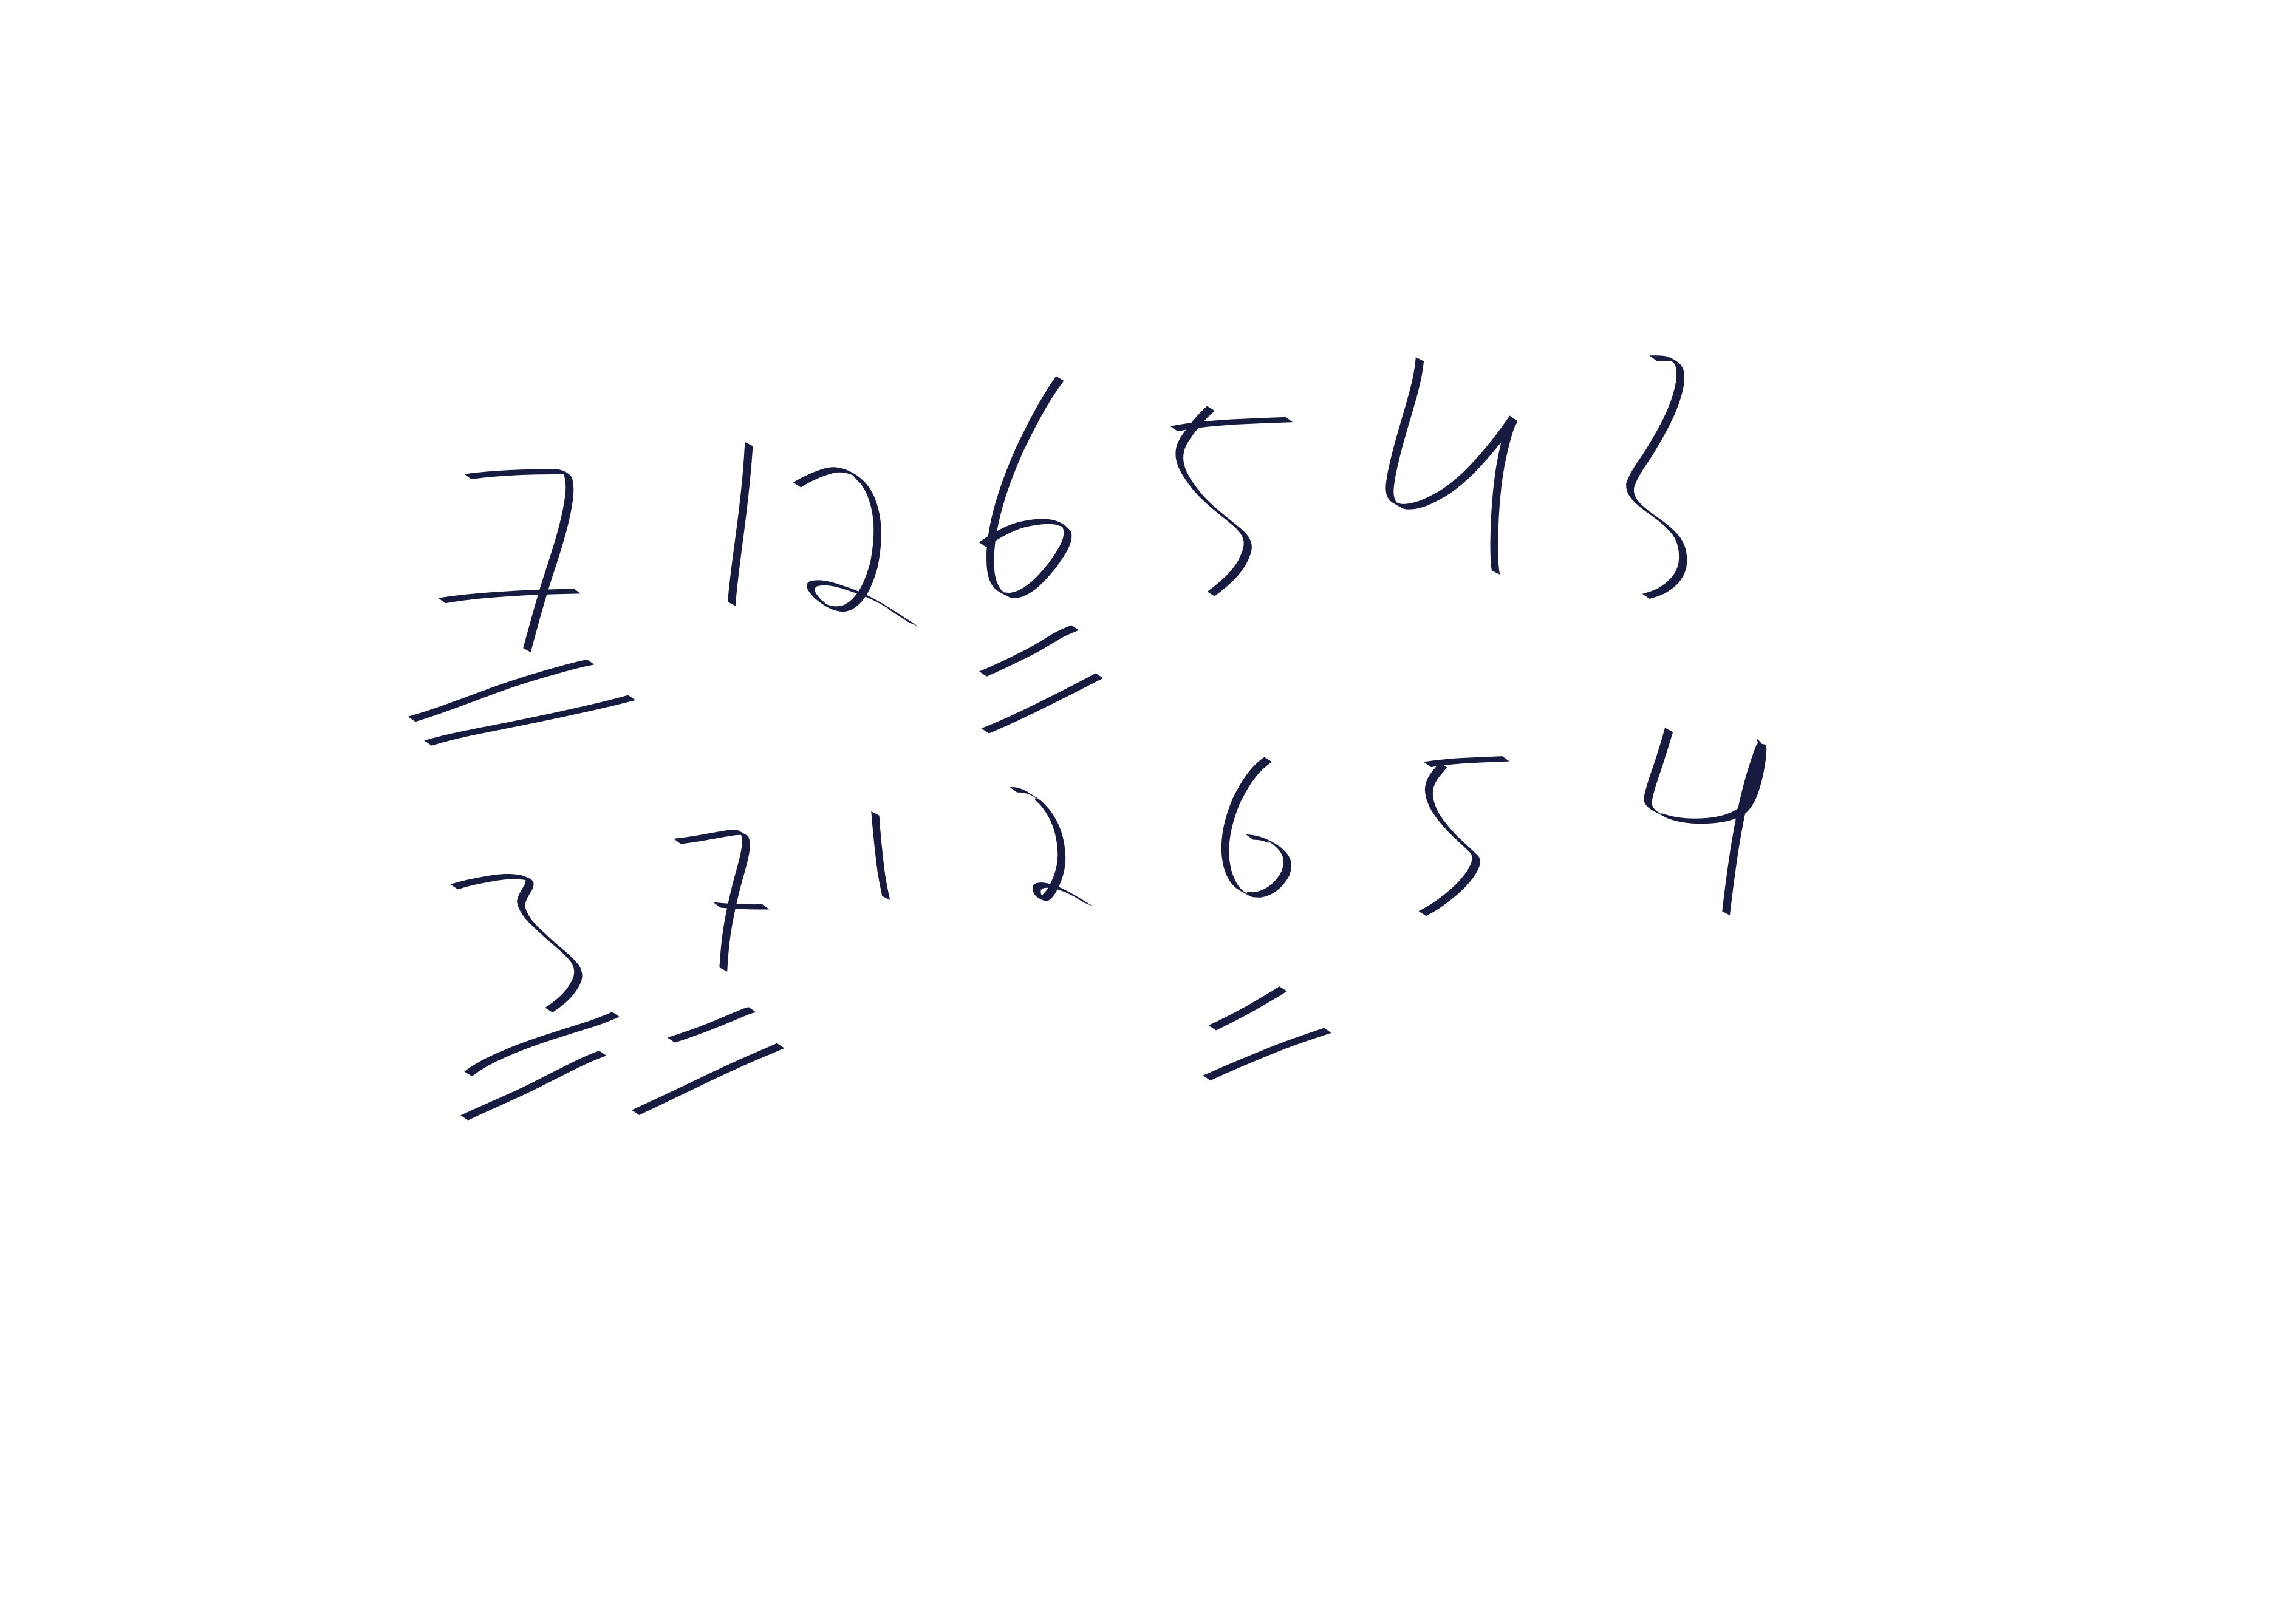 7 1 2 6 5 4 3
3 7 1 2 6 5 4